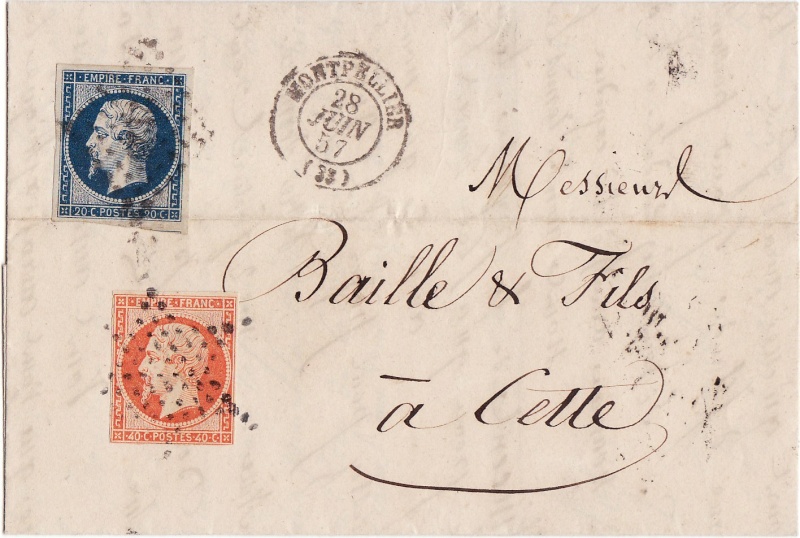 EMPIRE·FRANC·
20·C·POSTES·20·C·
MONTPELLIER
28
JUIN
57
(33)
Messieurs
Baille & Fils
à Cette
EMPIRE·FRANC·
40·C·POSTES·40·C·